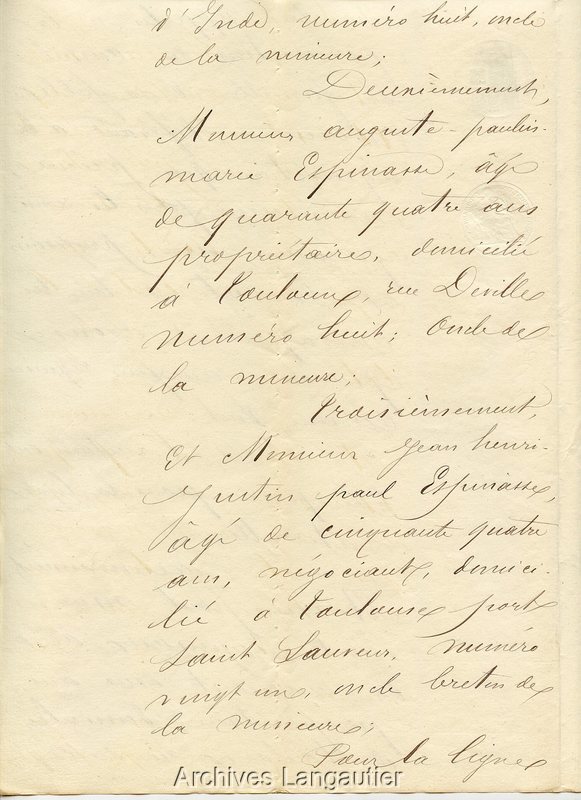 d'Inde, numéro huit, oncle
de la mineure;
Deuxièmement,
Monsieur auguste-paulin-
marie Espinasse, âgé
de quarante quatre ans
propriétaire, domicilié
à Toulouse, rue Deville
numéro huit; Oncle de
la mineure;
Troisièmement,
Et Monsieur Jean henri-
Justin paul Espinasse,
âgé de cinquante quatre
ans, négociant, domici-
lié à Toulouse port
Saint Sauveur, numéro
vingt un, oncle breton de
la mineure;
Pour la ligne
Archives Langautier